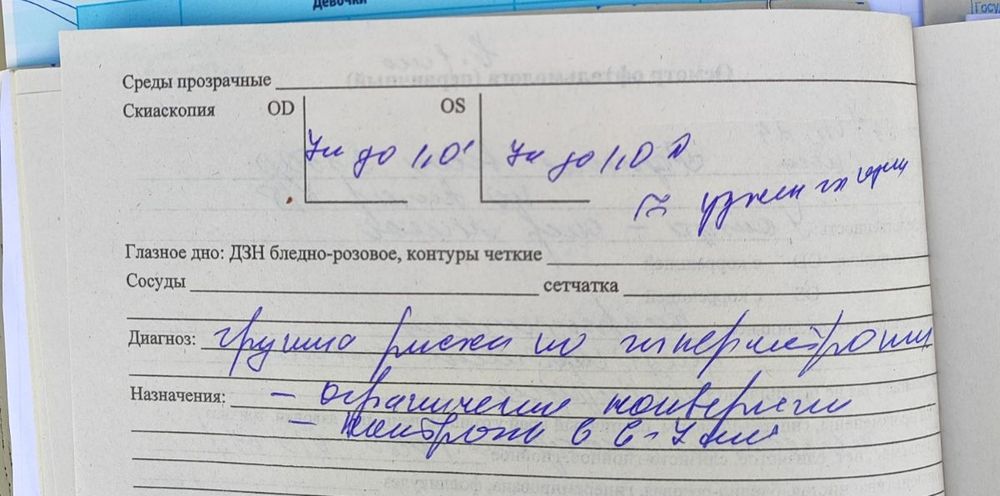 Девочки
Среды прозрачные
Скиаскопия OD OS
до 1,0 до 1,0 D
Глазное дно: ДЗН бледно-розовое, контуры четкие
Сосуды сетчатка
Диагноз: группа риска по гиперметропии
Назначения: - ограничение конвергенции
- контроль в 6-7 мес